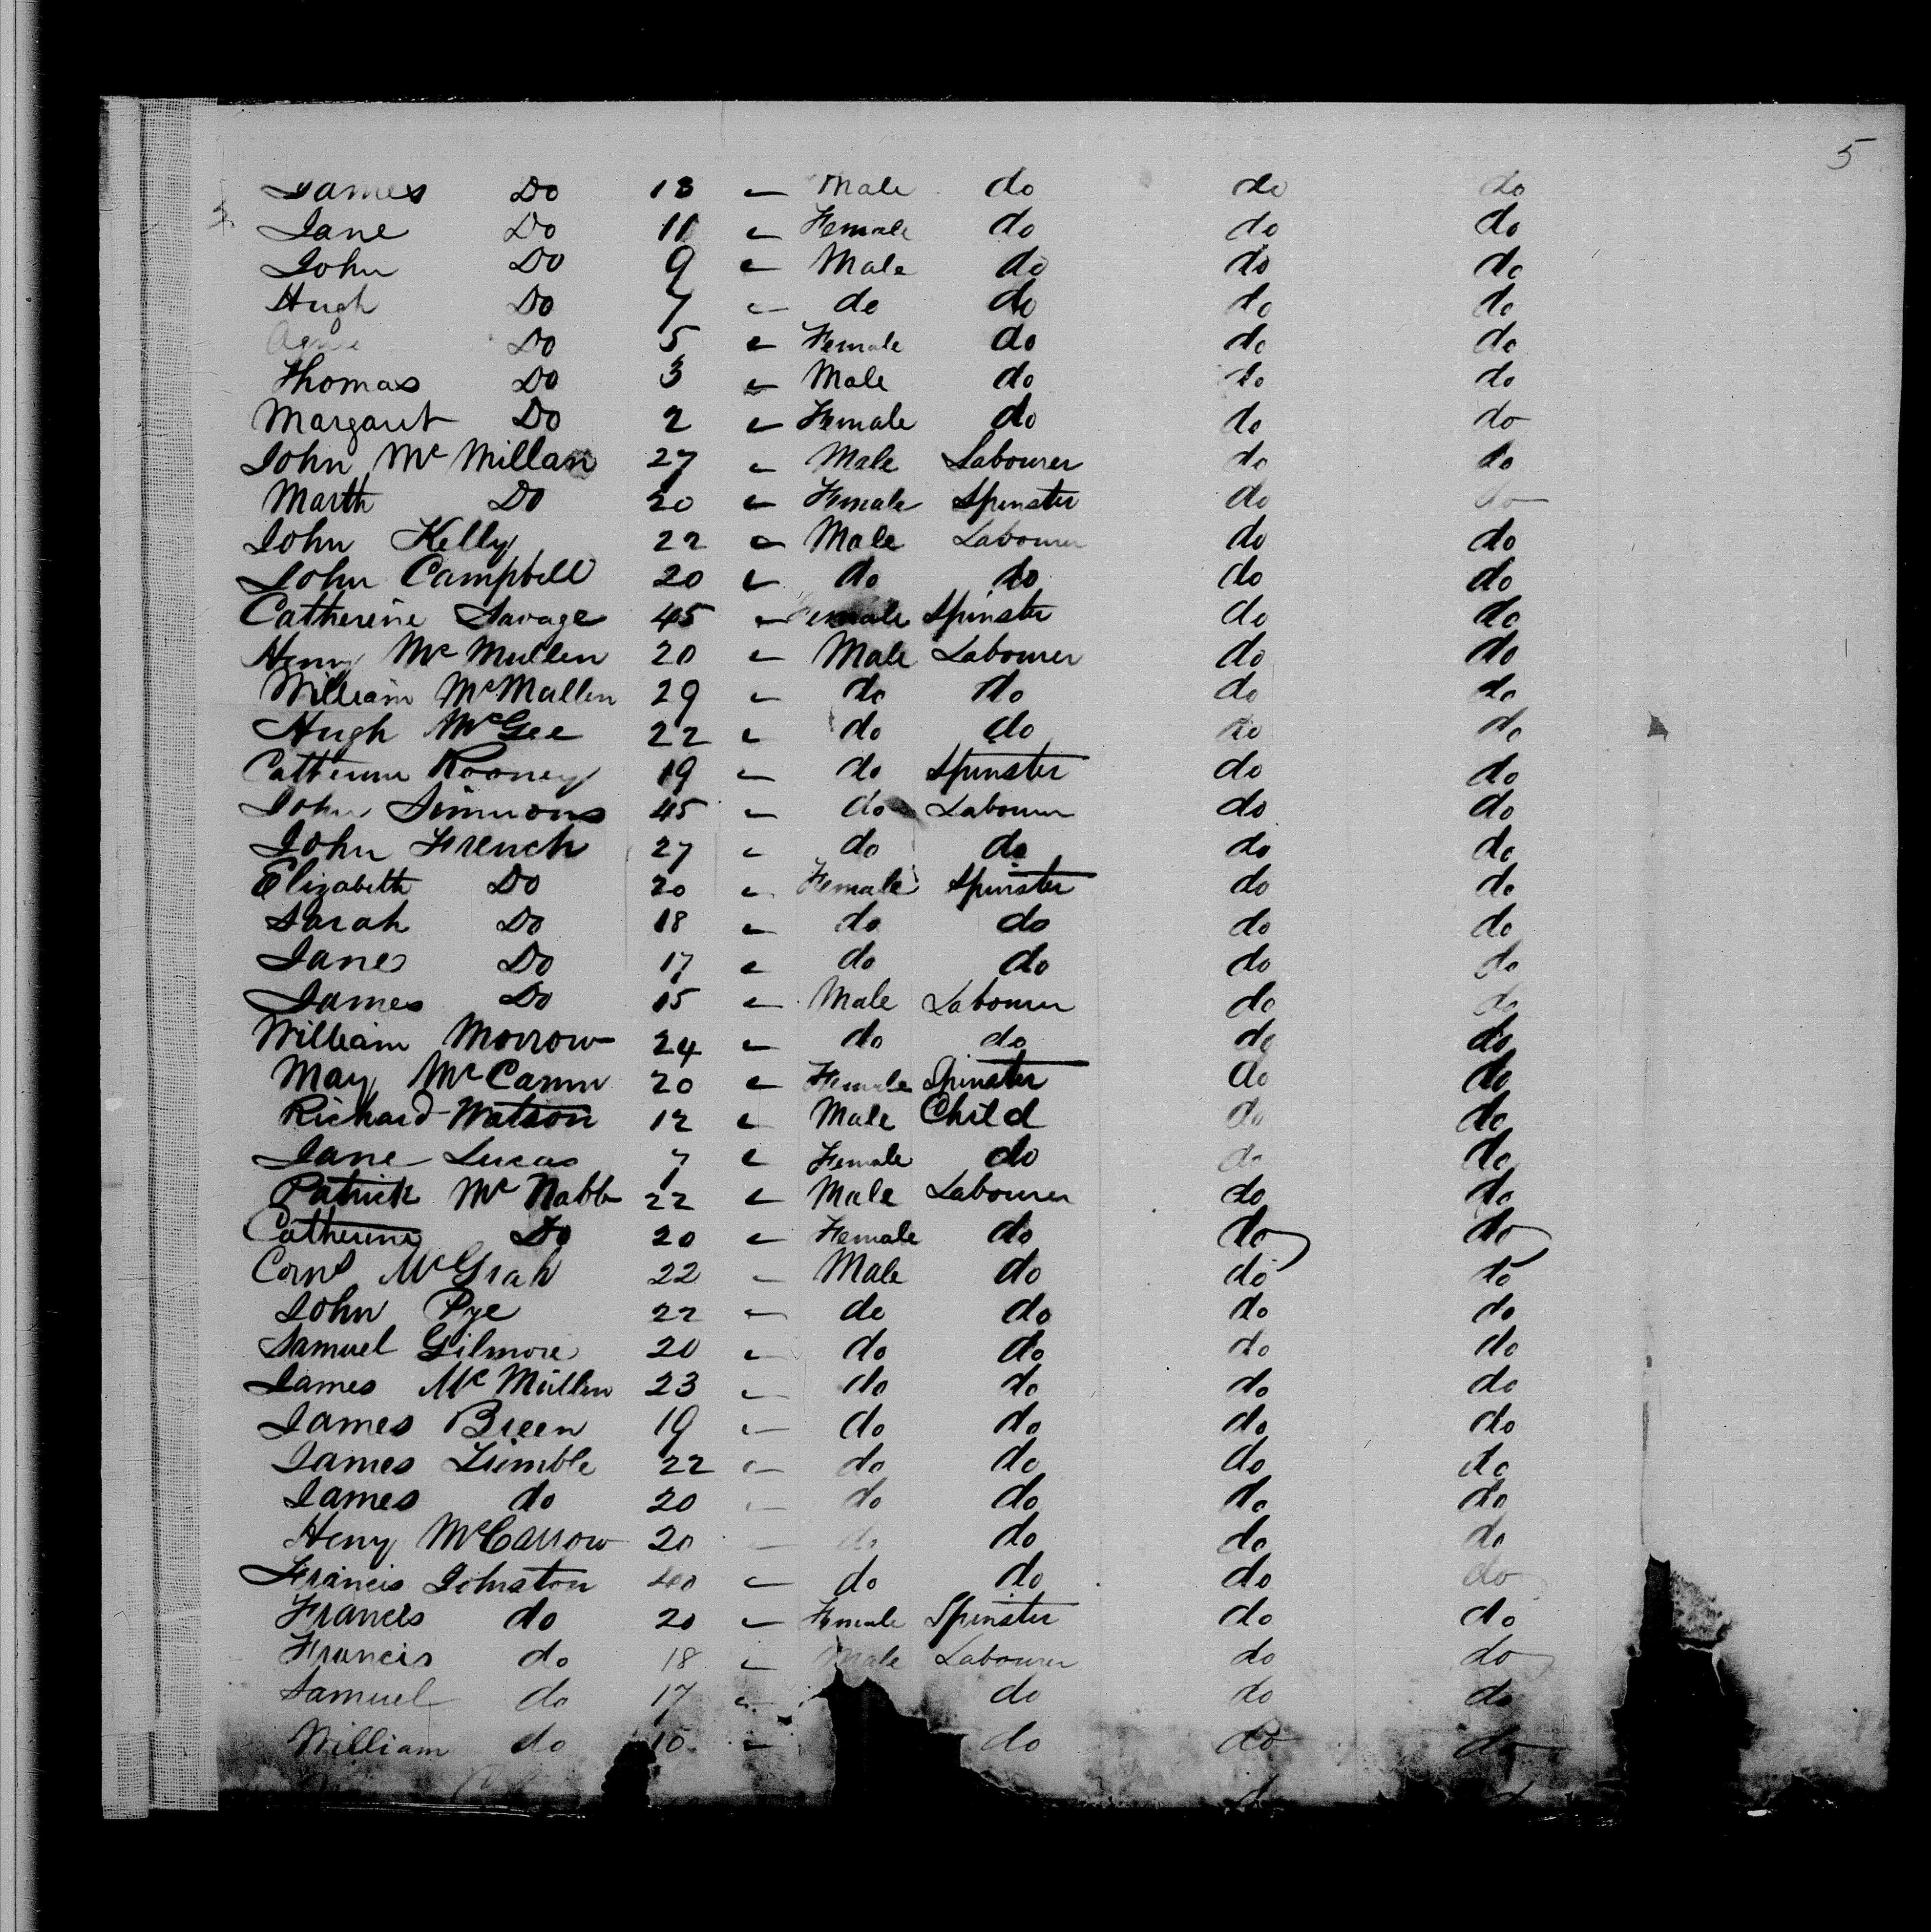 5
James Do 13 " Male do do do
Jane Do 11 " Female do do do
John Do 9 " Male do do do
Hugh Do 7 " do do do do
Do 5 " Female do do do
Thomas Do 3 " Male do do do
Margaret Do 2 " Female do do do
John Mc Millan 27 " Male Labourer do do
Marth Do 20 " Female Spinster do do
John Kelly 22 " Male Labourer do do
John Campbell 20 " do do do do
Catherine Savage 45 " Female Spinster do do
Henry Mc Mullen 20 " Male Labourer do do
William McMullen 29 " do do do do
Hugh McGee 22 " do do do do
Catherine Rooney 19 " do Spinster do do
John Simmons 45 " do Labourer do do
John French 27 " do do do do
Elizabeth Do 20 " Female Spinster do do
Sarah Do 18 " do do do do
Jane Do 17 " do do do do
James Do 15 " Male Labourer do do
William Morrow 24 " do do do do
May McCann 20 " Female Spinster do do
Richard Watson 12 " Male Child do do
Jane Lucas 7 " Female do do do
Patrick Mc Nabb 22 " Male Labourer do do
Catherine Do 20 " Female do do do
Corns McGrah 22 " Male do do do
John Pye 22 " do do do do
Samuel Gilmore 20 " do do do do
James Mc Mullen 23 " do do do do
James Breen 19 " do do do do
James 22 " do do do do
James do 20 " do do do do
Henry McCarrow 20 " do do do do
Francis Johnston 40 " do do do do
Frances do 20 " Female Spinster do do
Francis do 18 " Male Labourer do do
Samuel do 17 " do do do
William do 15 " do do do